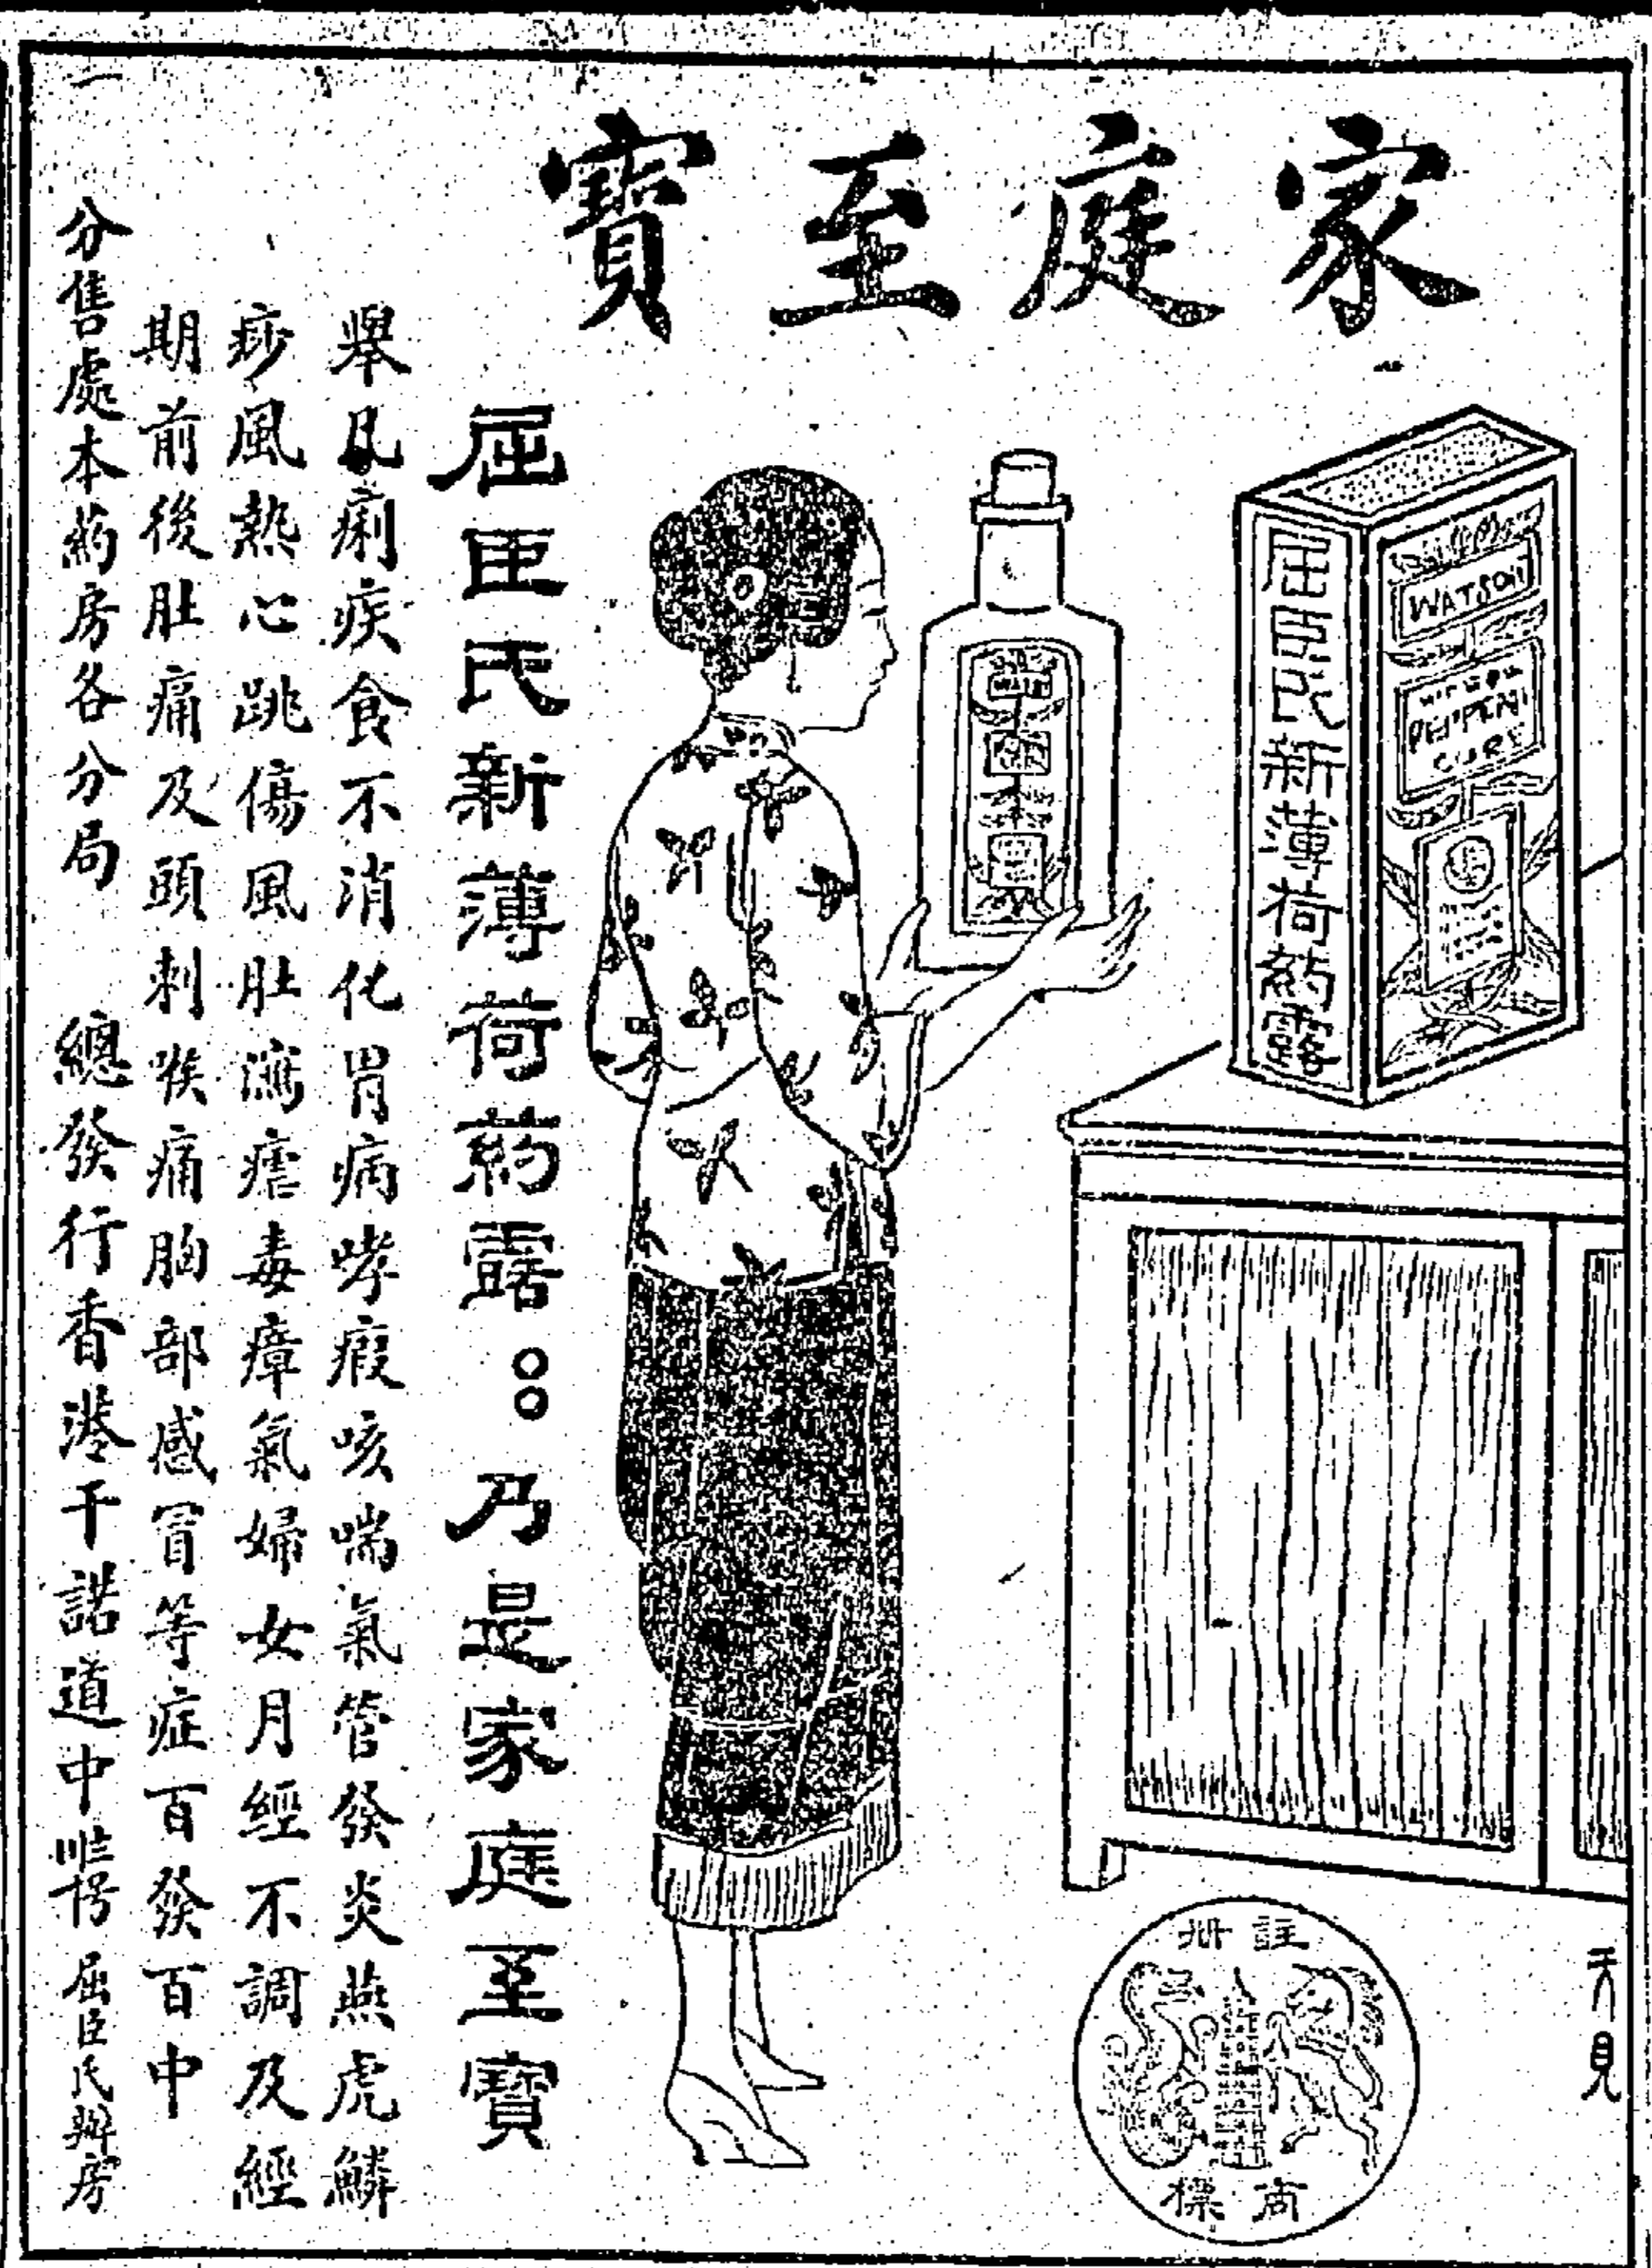 家庭至寶
屈臣氏新薄荷葯露
WATSON
CURE
屈臣氏新薄荷葯露。。乃是家庭至寶
舉凡痢疾食不消化胃病哮瘕咳喘氣管發炎燕虎鱗
痧風熱心跳傷風肚瀉瘧毒瘴氣婦女月經不調及經
期前後肚痛及頭刺喉痛胸部感冒等症百發百中
分售處本葯房各分局 總發行香港干諾道中 屈臣氏辦房
註冊
商標
天見